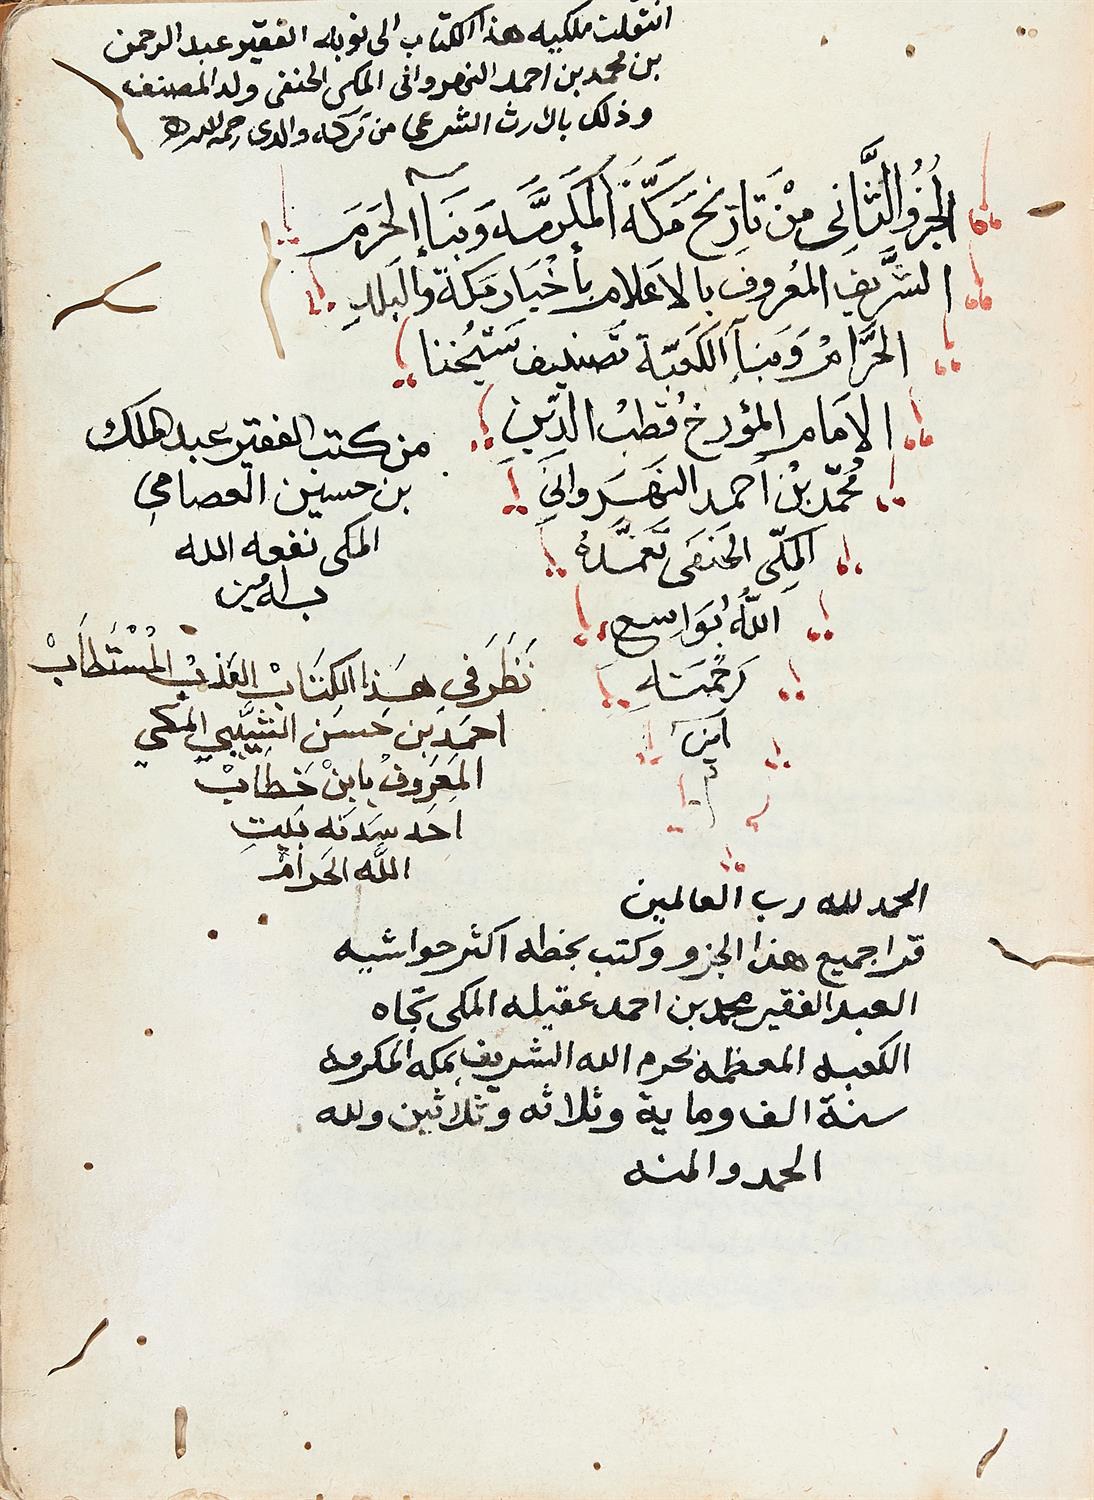 انتقلت ملكيه هذا الكتاب الى نوبة الفقير عبد الرحمن
بن محمد بن احمد النهروانى المكى الحنفى ولد المصنف
وذلك بالارث الشرعى من تركه والدى رحمه الله
الجُزؤ الثَّانِى مِنْ تَارِيْخ مَكَّةَ المُكَرَّمَه وَبِنَآءِ الحَرَمَ
الشَّرِيفِ المَعْرُوفِ بالاَعلامِ بأَخْبَارِ مَكَة وَالبَلَدِ
الحَرَّامْ وَبِنَآءِ الكَعْبَة تَصنيف شَيْخُنا
الاِمَام المؤرخُ قُطبُ الدِّينِ
مُحمَّد بْنُ اَحمد النَهَرَوانِى
المكِّى الحَنَفى تَغمَّدَهُ
اللَّهُ بُوَاسِعِ
رَحْمَتَهِ
امين
م
من كتب الفقير عبد الملك
بن حسين العصامي
المكى نفعه الله
به امين
نَظَرَ فِي هَذا الكِتَابْ العَذبْ المُسْتَطَابْ
احمَد بن حَسَن الشَّيْبِي المكي
المَعَرُوفْ بابنْ خَطابْ
احَد سَدَنَه بَيتِ
اللَّه الحَرامْ
الحمد لله رب العالمين
قرا جميع هذا الجزو وكتب بخطه اكثر حواشيه
العبد الفقير محمد بن احمد عقيله المكى تجاه
الكعبه المعظمه بحرم الله الشريف بمكه المكرمه
سنة الف وماية وثلاثه وثلاثين ولله
الحمد والمنه